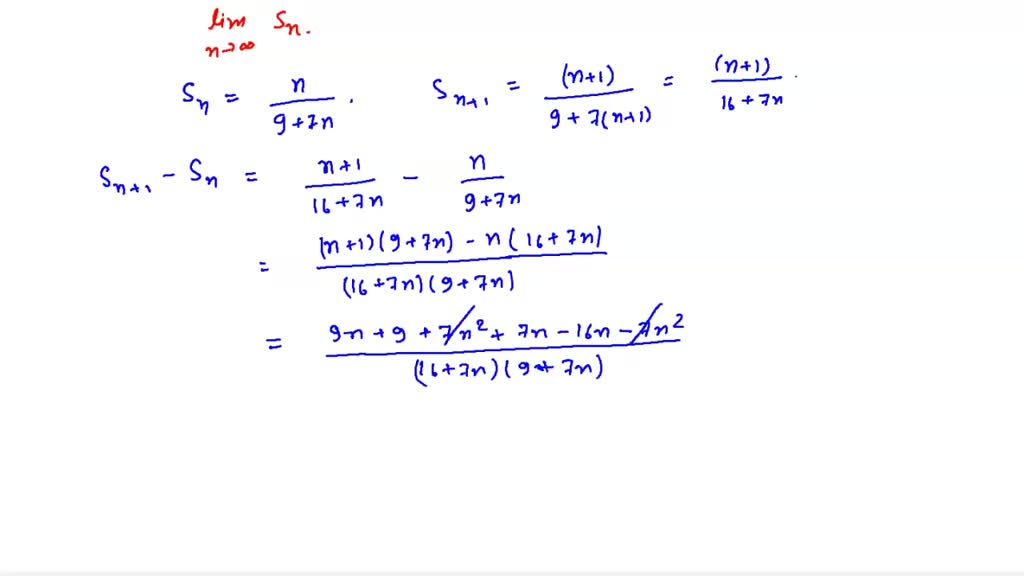 lim S_n.
n→∞
S_n = n / (9+7n) . S_{n+1} = (n+1) / (9+7(n+1)) = (n+1) / (16+7n) .
S_{n+1} - S_n = (n+1) / (16+7n) - n / (9+7n)
= ((n+1)(9+7n) - n(16+7n)) / ((16+7n)(9+7n))
= (9n+9+7n²+7n-16n-7n²) / ((16+7n)(9+7n))